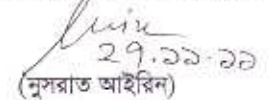 ২৭.১১.১১
(নুসরাত আইরিন)